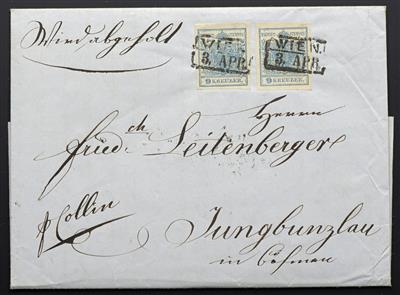 Wird abgeholt
WIEN.
3. APR.
WIEN.
3. APR.
9 KREUZER.
9 KREUZER.
Herrn
Fried.ch Leitenberger
p Collin
Jungbunzlau
in Böhmen